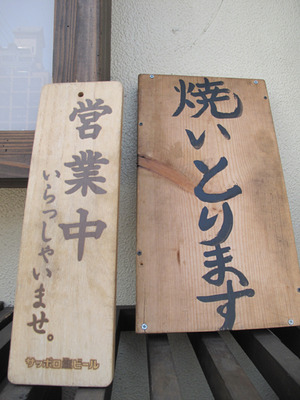 焼いとります
営業中
いらっしゃいませ。
サッポロ黒ビール